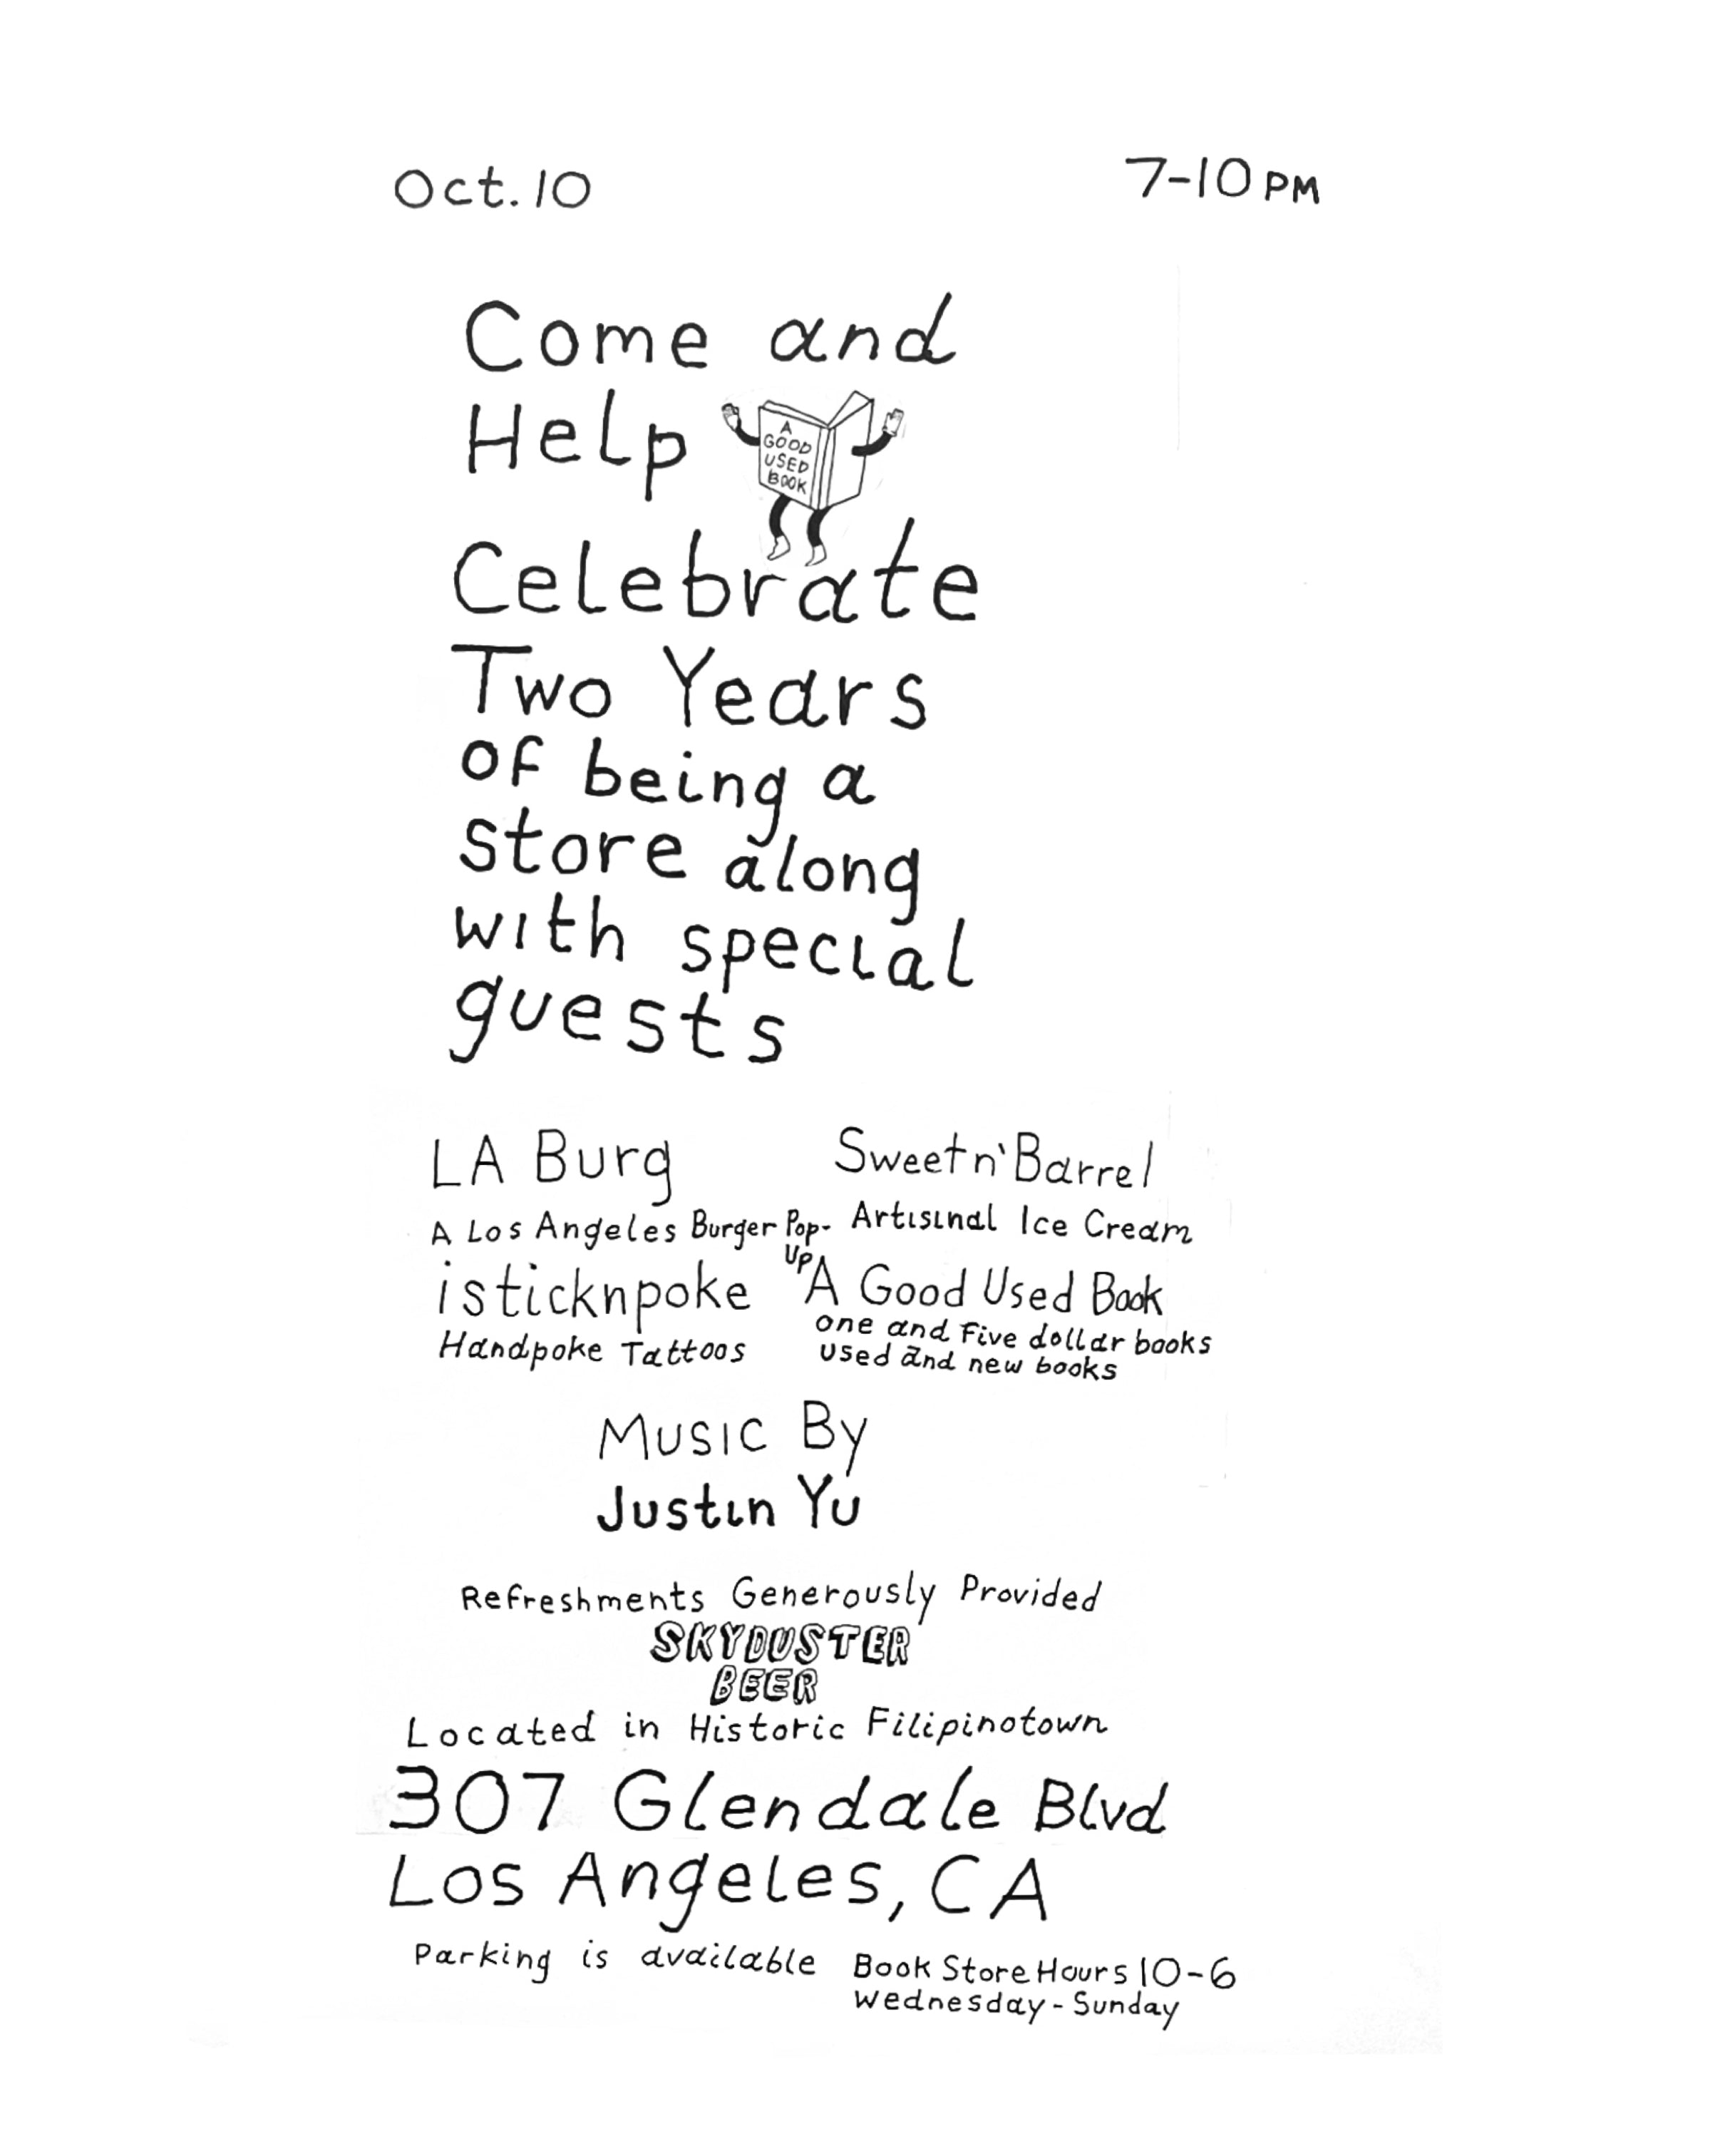 Oct. 10
7-10 PM
Come and
Help
A
GOOD
USED
BOOK
Celebrate
Two Years
of being a
store along
with special
guests
LA Burg
A Los Angeles Burger Pop-
Up
Sweet n' Barrel
Artisinal Ice Cream
isticknpoke
Handpoke Tattoos
A Good Used Book
one and five dollar books
used and new books
Music By
Justin Yu
Refreshments Generously Provided
SKYDUSTER
BEER
Located in Historic Filipinotown
307 Glendale Blvd
Los Angeles, CA
Parking is available
Book Store Hours 10-6
Wednesday - Sunday